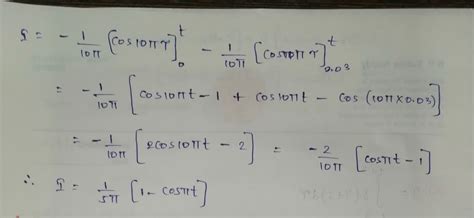 I = - 1/10π [cos10πτ]₀ᵗ - 1/10π [cos10πτ]₀.₀₃ᵗ
= - 1/10π [cos10πt - 1 + cos10πt - cos (10π×0.03)]
= - 1/10π [2cos10πt - 2] = -2/10π [cosπt - 1]
∴ I = 1/5π [1 - cosπt]